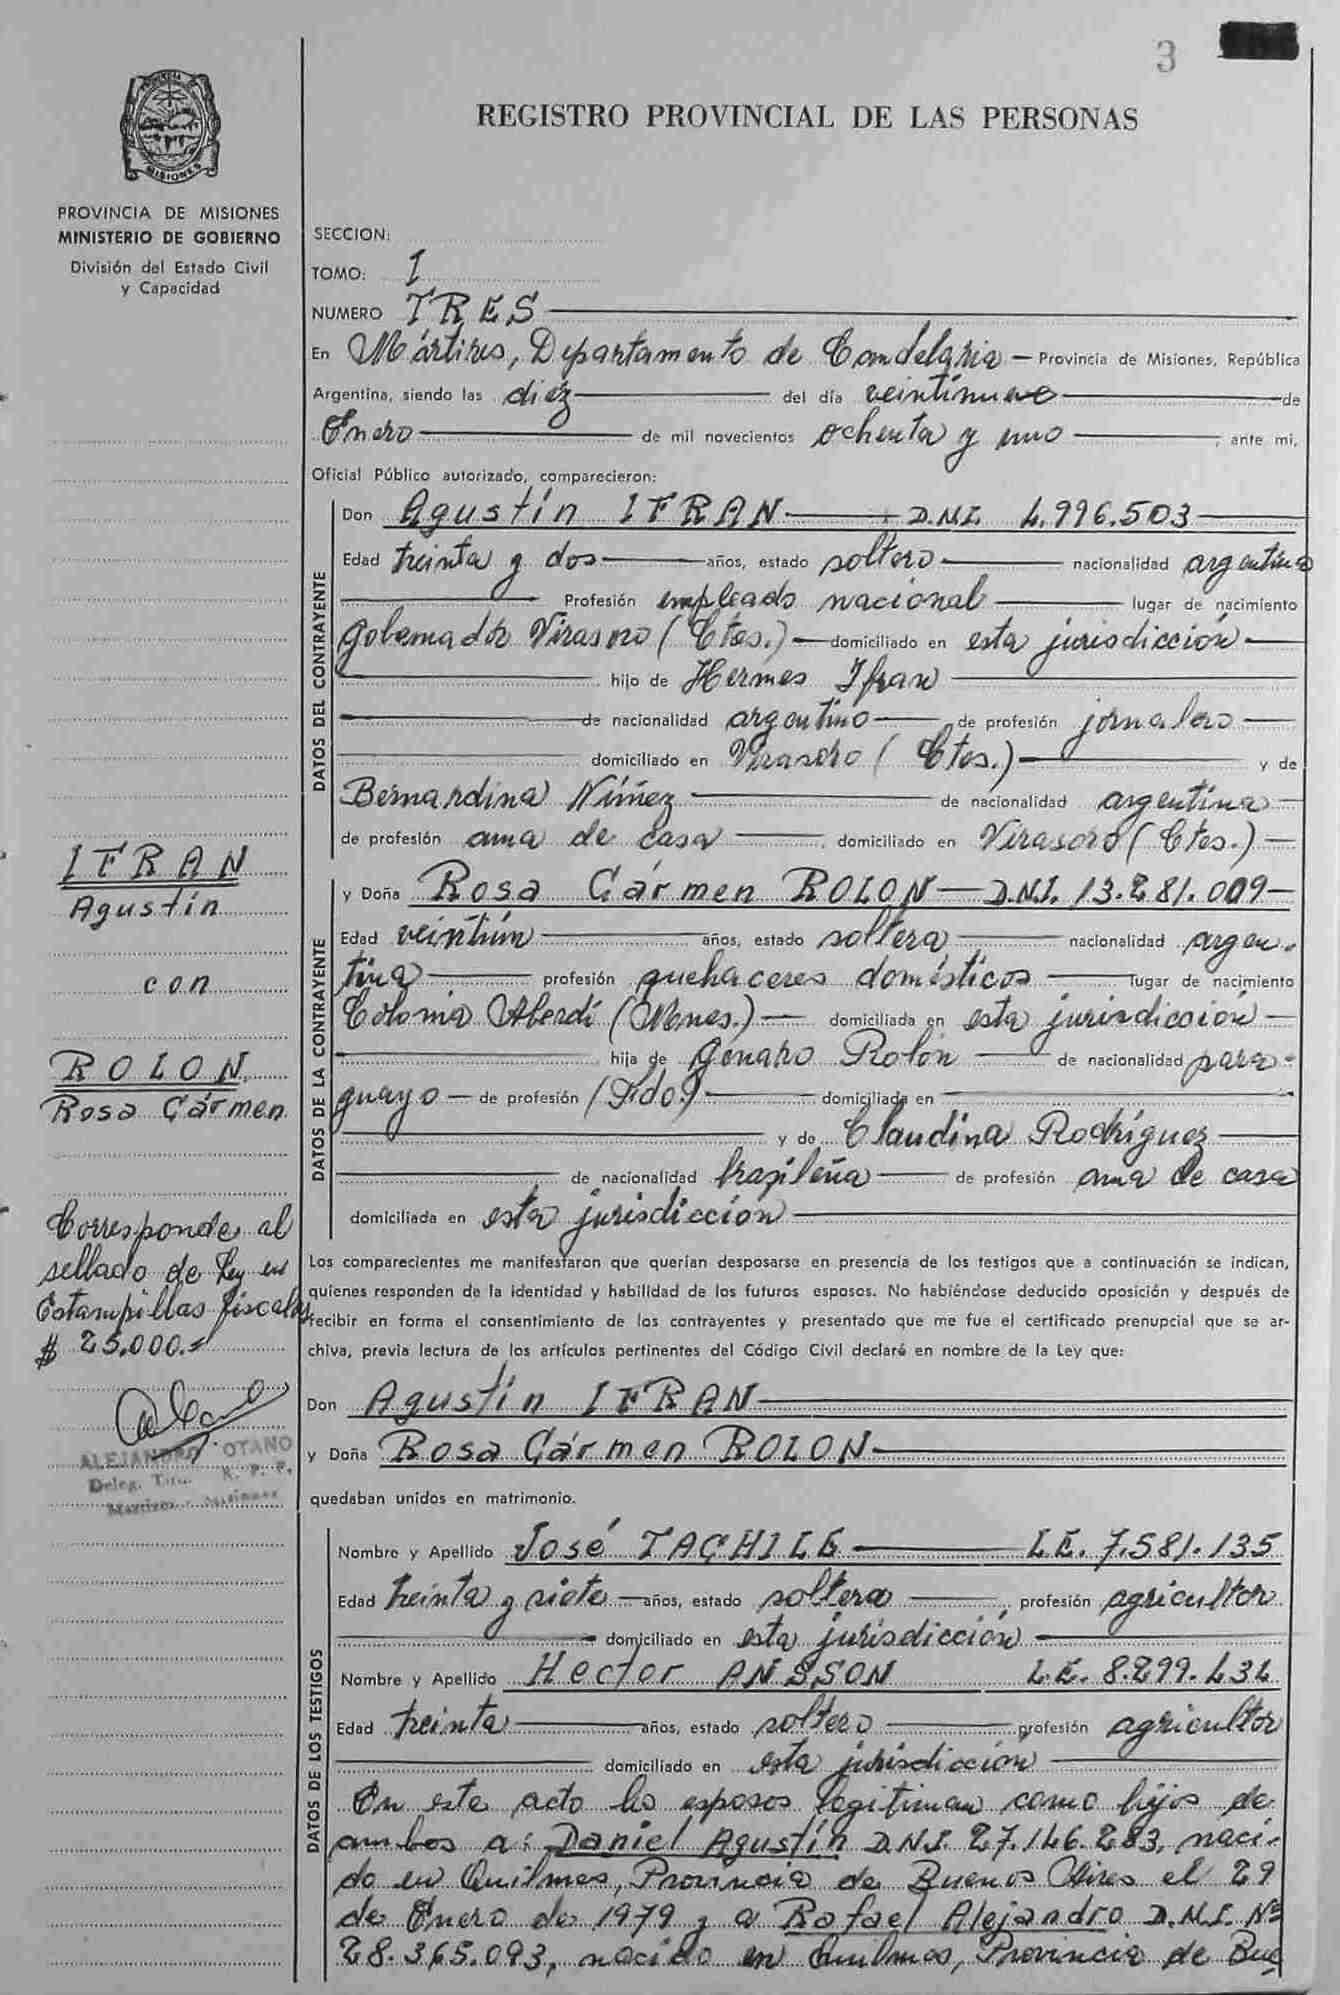 3
REGISTRO PROVINCIAL DE LAS PERSONAS
MISIONES
PROVINCIA DE MISIONES
MINISTERIO DE GOBIERNO
División del Estado Civil
y Capacidad
SECCION:
TOMO: I
NUMERO TRES
En Mártires, Departamento de Candelaria - Provincia de Misiones, República
Argentina, siendo las diéz del día veintinueve de
Enero de mil novecientos ochenta y uno, ante mi,
Oficial Público autorizado, comparecieron:
DATOS DEL CONTRAYENTE
Don Agustín IFRAN D.N.I. 4.996.503
Edad treinta y dos años, estado soltero nacionalidad argentino
Profesión empleado nacional lugar de nacimiento
Gobernador Virasoro (Ctes.) domiciliado en esta jurisdicción
hijo de Hermes Ifran
de nacionalidad argentino de profesión jornalero
domiciliado en Virasoro (Ctes.) y de
Bernardina Núñez de nacionalidad argentina
de profesión ama de casa domiciliado en Virasoro (Ctes.)
IFRAN
Agustín
con
ROLON
Rosa Cármen
DATOS DE LA CONTRAYENTE
y Doña Rosa Cármen ROLON D.N.I. 13.281.009
Edad veintiún años, estado soltera nacionalidad argen-
tina profesión quehaceres domésticos lugar de nacimiento
Colonia Alberdi (Mnes.) domiciliada en esta jurisdicción
hija de Genaro Rolón de nacionalidad para-
guayo de profesión (Fdo.) domiciliada en
y de Claudina Rodríguez
de nacionalidad brasileña de profesión ama de casa
domiciliada en esta jurisdicción
Corresponde al
sellado de Ley en
Estampillas fiscales
$ 25.000.-
ALEJANDRO OTANO
Deleg. R. P. P.
Martires - Misiones
Los comparecientes me manifestaron que querían desposarse en presencia de los testigos que a continuación se indican,
quienes responden de la identidad y habilidad de los futuros esposos. No habiéndose deducido oposición y después de
recibir en forma el consentimiento de los contrayentes y presentado que me fue el certificado prenupcial que se ar-
chiva, previa lectura de los artículos pertinentes del Código Civil declaré en nombre de la Ley que:
Don Agustín IFRAN
y Doña Rosa Cármen ROLON
quedaban unidos en matrimonio.
DATOS DE LOS TESTIGOS
Nombre y Apellido José TACHILE L.E. 7.581.135
Edad treinta y siete años, estado soltero profesión agricultor
domiciliado en esta jurisdicción
Nombre y Apellido Hector ANSSON L.E. 8.299.434
Edad treinta años, estado soltero profesión agricultor
domiciliado en esta jurisdicción
En este acto los esposos legitiman como hijos de
ambos a: Daniel Agustín D.N.I. 27.146.283, naci-
do en Quilmes, Provincia de Buenos Aires el 29
de Enero de 1979 y a Rafael Alejandro D.N.I. Nº
28.365.093, nacido en Quilmes, Provincia de Bue